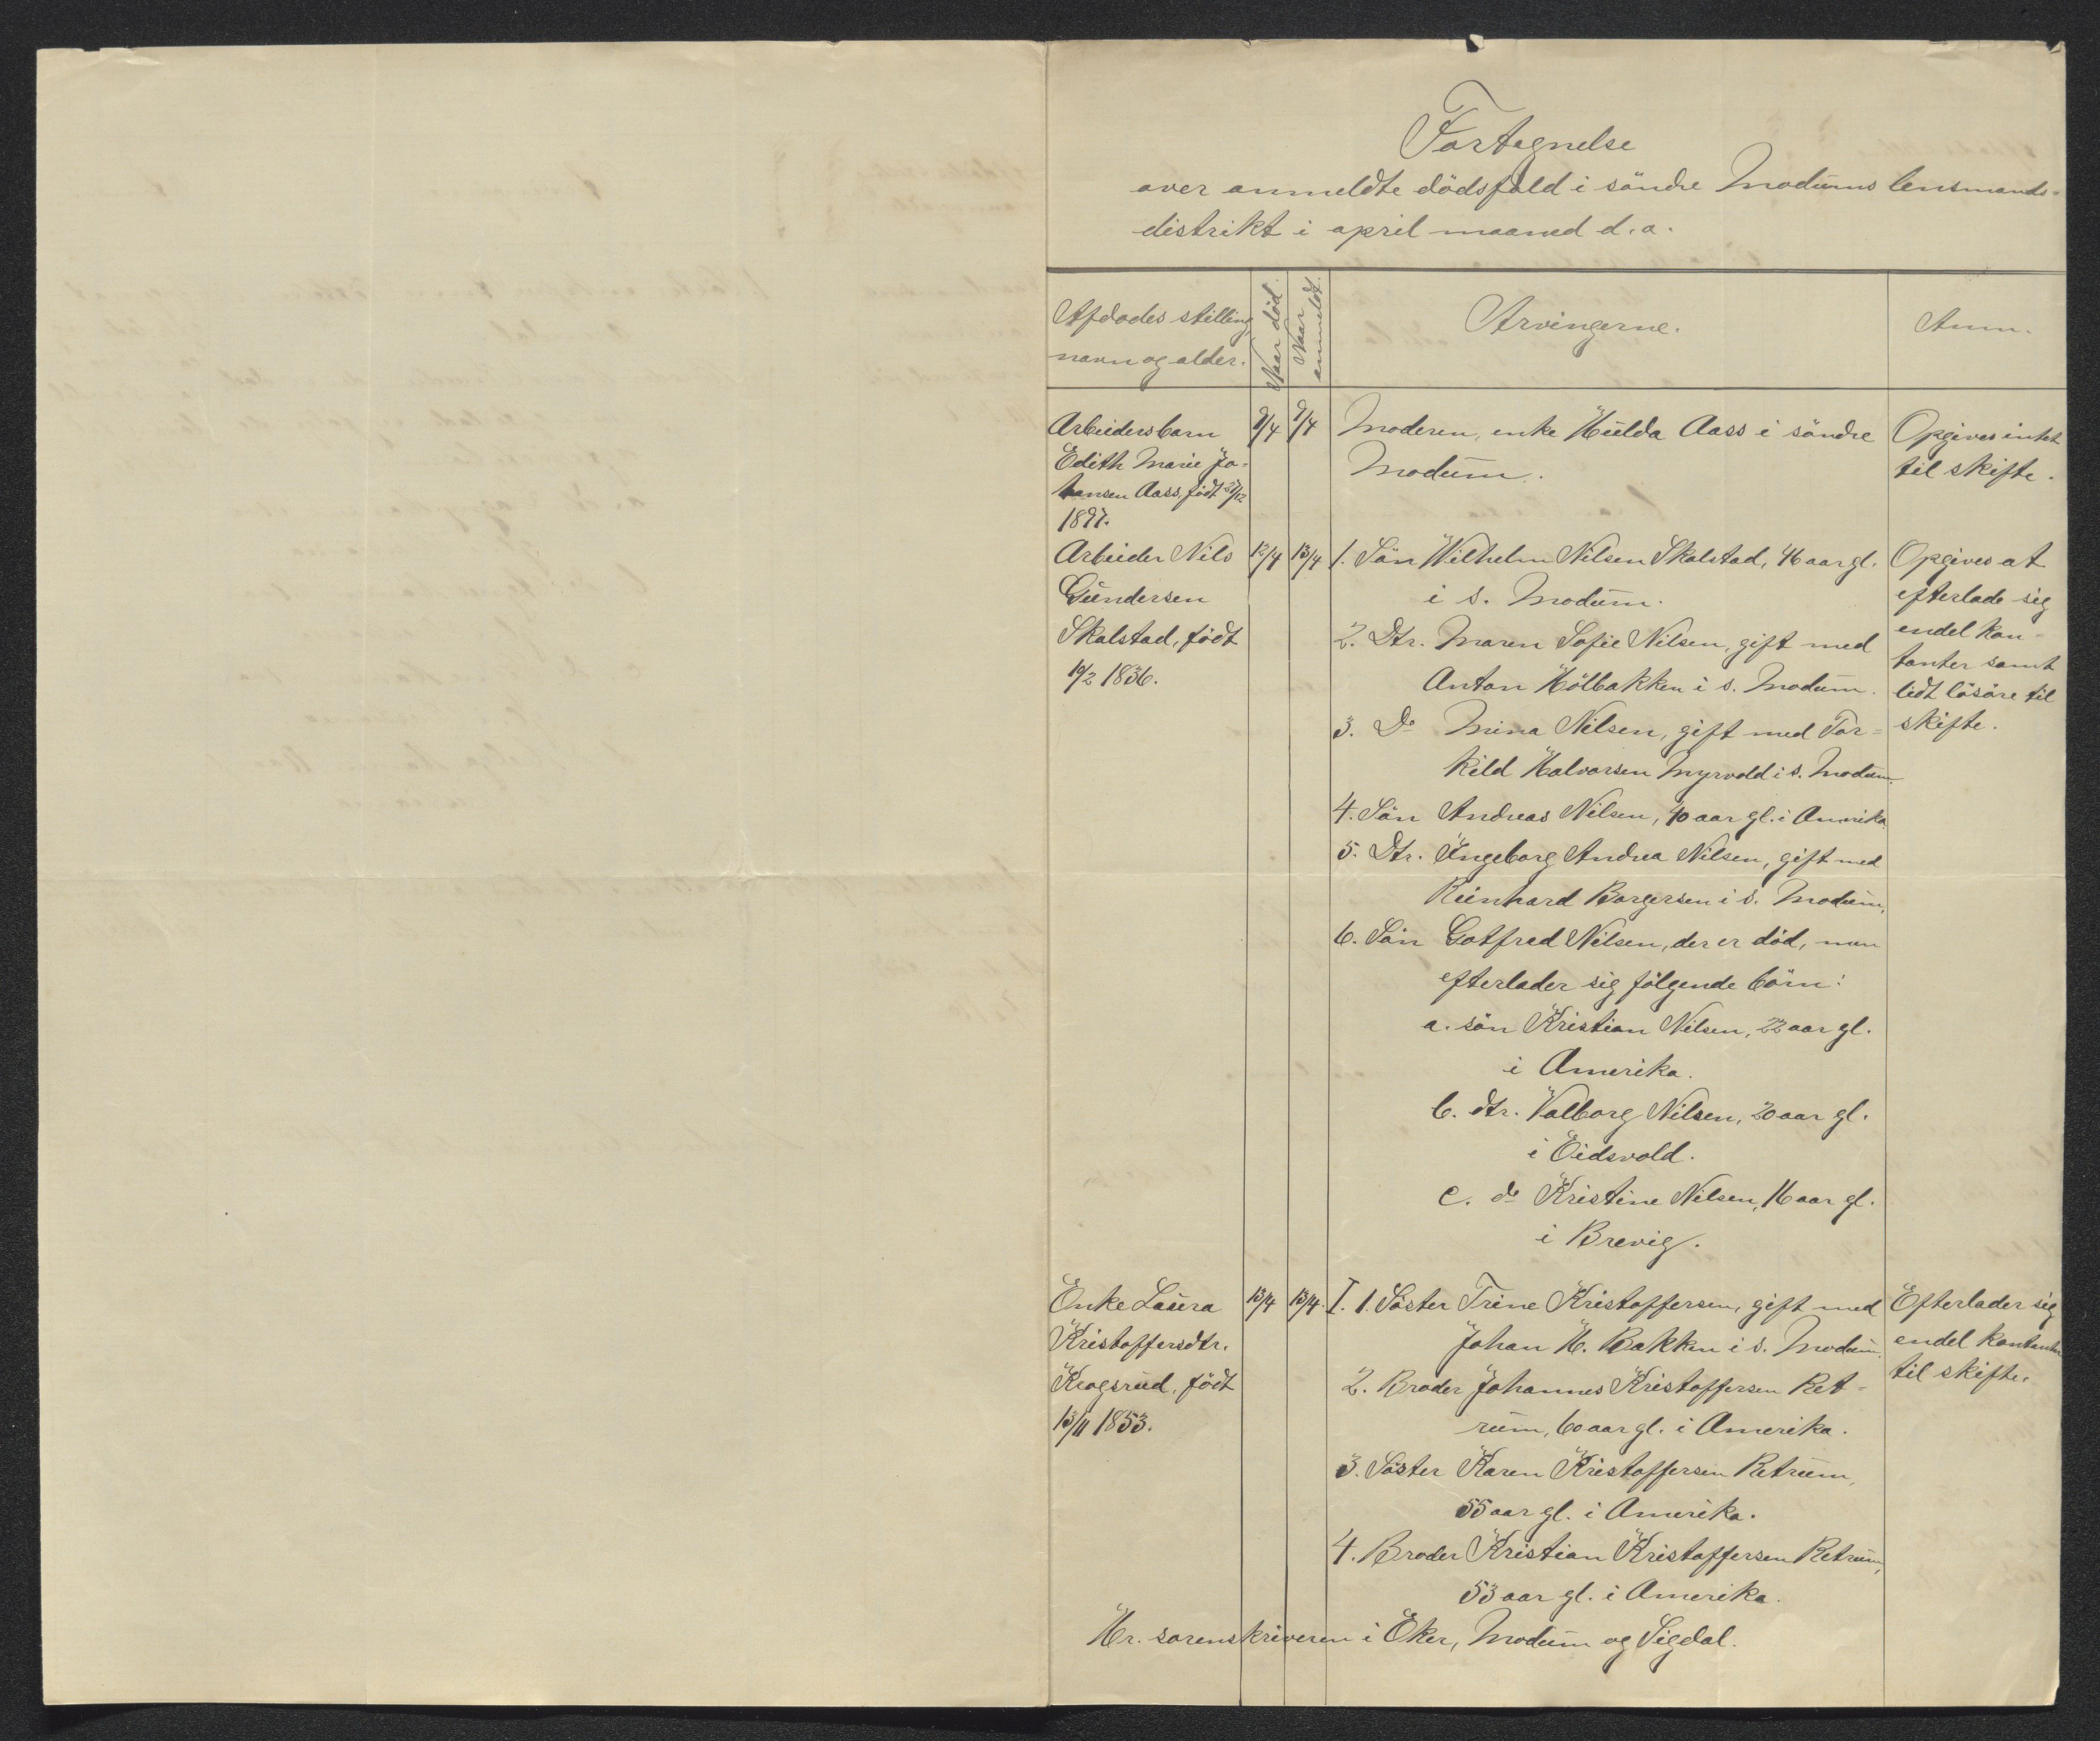 Fortegnelse
over anmeldte dödsfald i söndre Modums lensmands-
distrikt i april maaned d.a.
Afdödes stilling
navn og alder.
Naar död.
Naar
anmeldt.
Arvingerne.
Anm.
Arbeidersbarn
Edith Marie Jo-
hansen Aass, födt 27/12
1897.
9/4
9/4
Moderen, enke Hulda Aass i söndre
Modum.
Opgives intet
til skifte.
Arbeider Nils
Gundersen
Skalstad, födt
19/2 1836.
12/4
13/4
1. Sön Wilhelm Nilsen Skalstad, 46 aar gl.
i s. Modum.
2. Dtr. Maren Sofie Nilsen, gift med
Anton Hölbakken i s. Modum.
3. Do Mina Nilsen, gift med Tor-
kild Halvorsen Myrvold i s. Modum.
4. Sön Andreas Nilsen, 40 aar gl. i Amerika.
5. Dtr. Ingeborg Andrea Nilsen, gift med
Reinhard Borgersen i s. Modum,
6. Sön Gotfred Nilsen, der er död, men
efterlader sig fölgende börn:
a. sön Kristian Nilsen, 22 aar gl.
i Amerika.
b. dtr. Valborg Nilsen, 20 aar gl.
i Eidsvold.
c. do Kristine Nilsen, 16 aar gl.
i Brevig.
Opgives at
efterlade sig
endel kon-
tanter samt
lidt lösöre til
skifte.
Enke Laura
Kristoffersdtr.
Krogsrud, födt
13/11 1853.
13/4
13/4.
I. 1. Söster Trine Kristoffersen, gift med
Johan H. Bakken i s. Modum.
2. Broder Johannes Kristoffersen Ret-
rum, 60 aar gl. i Amerika.
3. Söster Karen Kristoffersen Retrum,
55 aar gl. i Amerika.
4. Broder Kristian Kristoffersen Retrum,
53 aar gl. i Amerika.
Efterlader sig
endel kontanter
til skifte.
Hr. sorenskriveren i Eker, Modum og Sigdal.